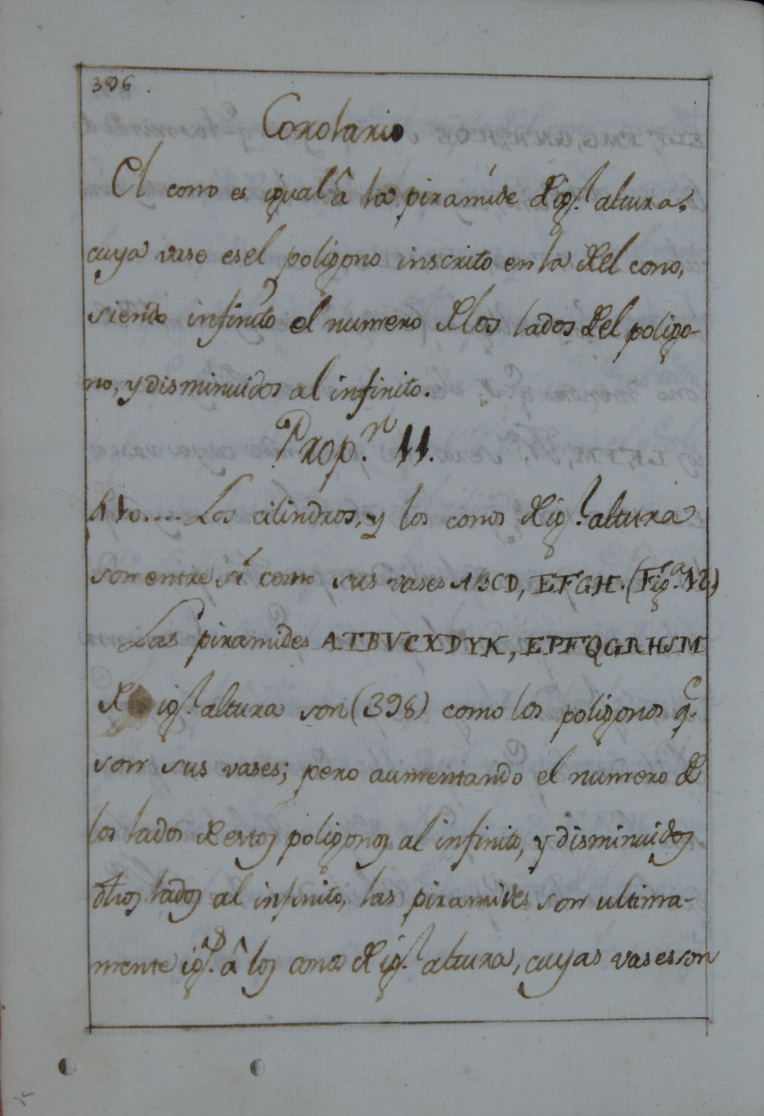 396.
Corolario
El cono es igual â la piramide de ig.l altura,
cuya vase es el poligono inscrito en la del cono,
siendo infinito el numero de los lados del poligo-
no, y disminuidos al infinito.
Prop.n 11.
410.... Los cilindros, y los conos de ig.l altura
son entre sí como sus vases ABCD, EFGH. (Fig.a 12)
Las piramides ATBVCXDYK, EPFQGRHSM
de ig.l altura son (398) como los poligonos q.e
son sus vases; pero aumentando el numero de
los lados de estos poligonos al infinito, y disminuidos
dhos lados al infinito, las piramides son ultima-
mente ig.s â los conos de ig.l altura, cuyas vases son